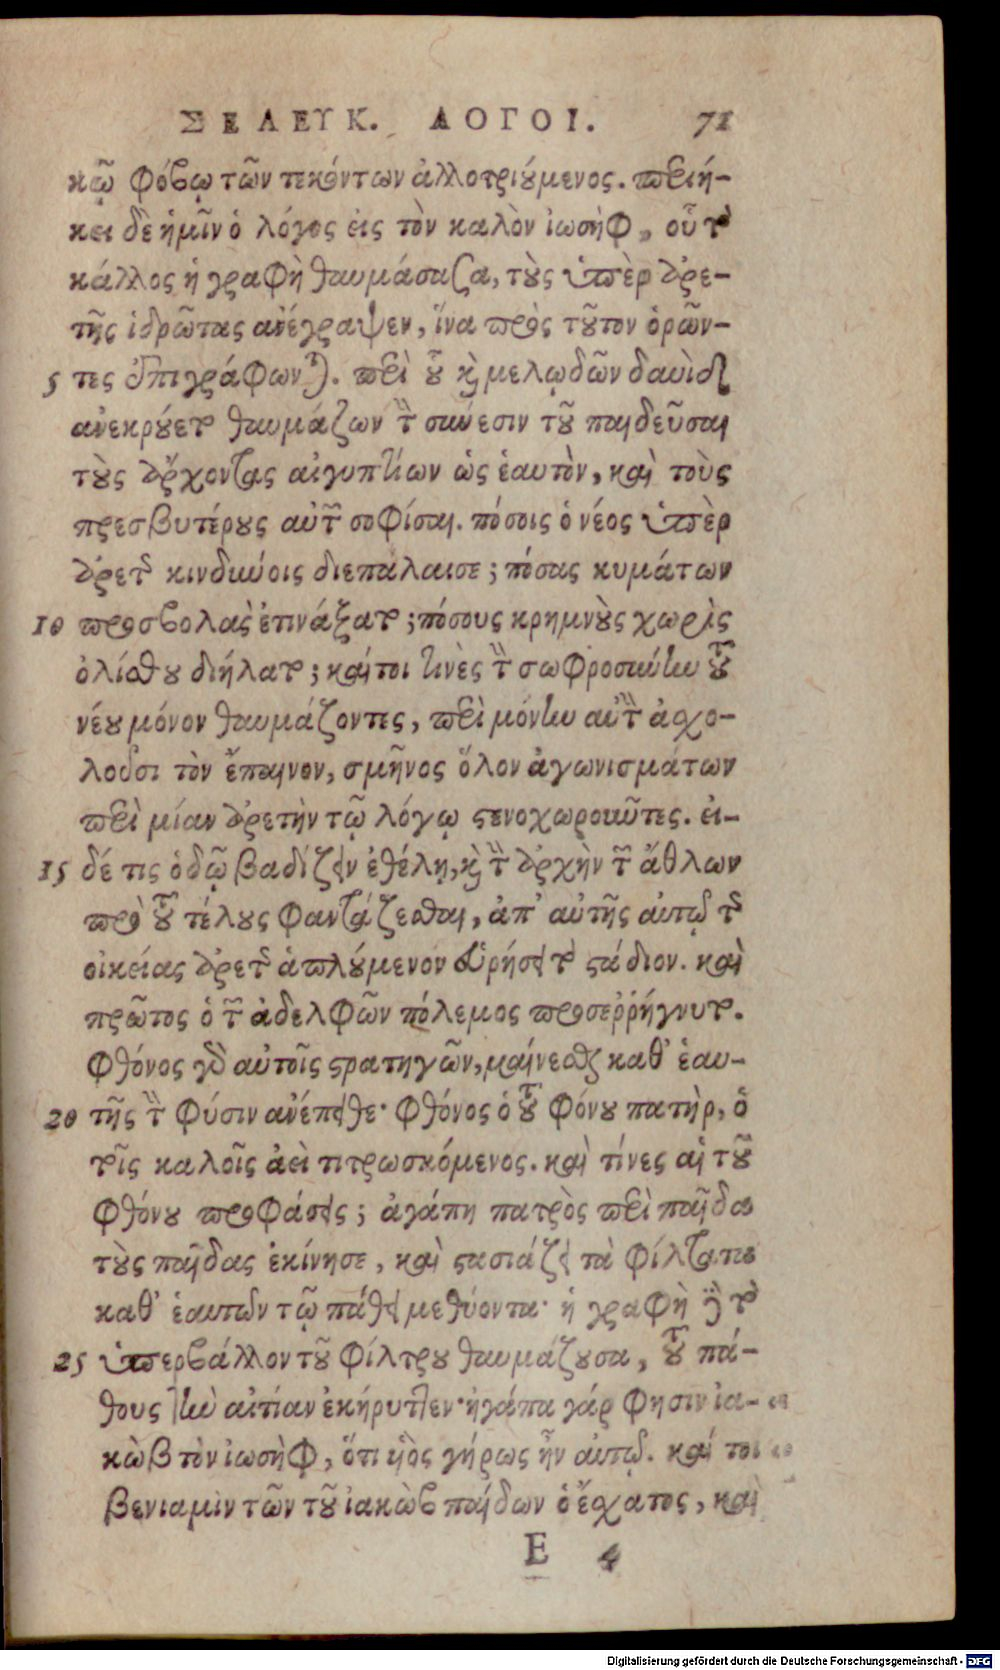 ΣΕΛΕΥΚ. ΛΟΓΟΙ. 71
κῷ φόβῳ τῶν τεκόντων ἀλλοτριούμενος. περιή-
κει δὲ ἡμῖν ὁ λόγος εἰς τὸν καλὸν ἰωσὴφ, οὗ τὸ
κάλλος ἡ γραφὴ θαυμάσασα, τοὺς ὑπὲρ ἀρε-
τῆς ἱδρῶτας ἀνέγραψεν, ἵνα πρὸς τοῦτον ὁρῶν-
5 τες ἐπιγράφωνται. περὶ οὗ καὶ μελῳδῶν δαυὶδ
ἀνεκρούετο θαυμάζων τὴν σύνεσιν τοῦ παιδεῦσαι
τοὺς ἄρχοντας αἰγυπτίων ὡς ἑαυτὸν, καὶ τοὺς
πρεσβυτέρους αὐτοῦ σοφίσαι. πόσοις ὁ νέος ὑπὲρ
ἀρετῆς κινδύνοις διεπάλαισε; πόσας κυμάτων
10 προσβολὰς ἐτινάξατο; πόσους κρημνοὺς χωρὶς
ὀλίσθου διήλατο; καίτοι τινὲς τὴν σωφροσύνην τοῦ
νέου μόνον θαυμάζοντες, περὶ μόνην αὐτὴν ἀσχο-
λοῦσι τὸν ἔπαινον, σμῆνος ὅλον ἀγωνισμάτων
περὶ μίαν ἀρετὴν τῷ λόγῳ στενοχωροῦντες. εἰ-
15 δέ τις ὁδῷ βαδίζειν ἐθέλῃ, καὶ τὴν ἀρχὴν τῶν ἄθλων
πρὸ τοῦ τέλους φαντάζεσθαι, ἀπ' αὐτῆς αὐτῷ τῆς
οἰκείας ἀρετῆς ἁπλούμενον εὑρήσει τὸ στάδιον. καὶ
πρῶτος ὁ τῶν ἀδελφῶν πόλεμος προσεῤῥήγνυτο.
Φθόνος γὰρ αὐτοῖς στρατηγῶν, μαίνεσθαι καθ' ἑαυ-
20 τῆς τὴν φύσιν ἀνέπειθε· φθόνος ὁ τοῦ φόνου πατὴρ, ὁ
τοῖς καλοῖς ἀεὶ τιτρωσκόμενος. καὶ τίνες αἱ τοῦ
φθόνου προφάσεις; ἀγάπη πατρὸς περὶ παῖδα
τοὺς παῖδας ἐκίνησε, καὶ στασιάζει τὰ φίλτατα
καθ' ἑαυτῶν τῷ πάθει μεθύοντα· ἡ γραφὴ γὰρ τὸ
25 ὑπερβάλλον τοῦ φίλτρου θαυμάζουσα, τοῦ πά-
θους τὴν αἰτίαν ἐκήρυττεν· ἠγάπα γάρ φησιν ἰα-
κὼβ τὸν ἰωσὴφ, ὅτι υἱὸς γήρως ἦν αὐτῷ. καί τοι
βενιαμὶν τῶν τοῦ ἰακὼβ παίδων ὁ ἔσχατος, καὶ
E 4
Digitalisierung gefördert durch die Deutsche Forschungsgemeinschaft - DFG